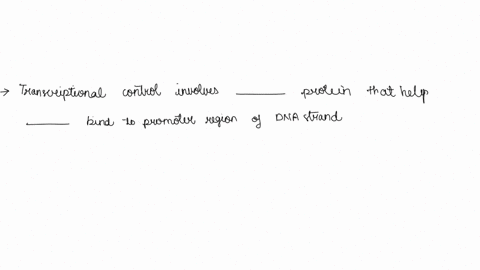 → Transcriptional control involves ______ protein that help
______ bind to promoter region of DNA strand